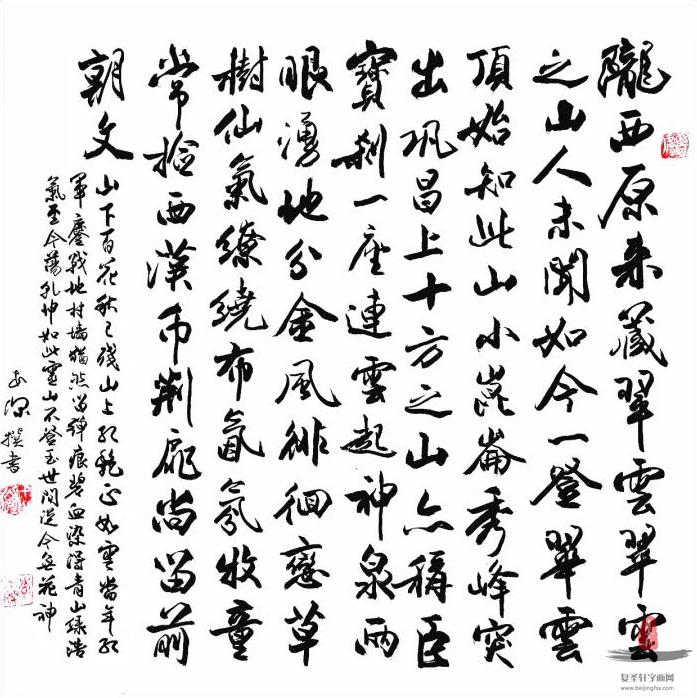 隴西原来藏翠雲翠雲
之山人未聞如今一登翠雲
頂始知此山小崑崙秀峰突
出巩昌上十方之山亦稱臣
寶刹一座連雲起神泉兩
眼湧地分金風徘徊戀草
樹仙氣繚繞布氤氛牧童
常捡西漢币荆扉尚留前
朝文
山下百花秋之殘山上紅艶正如雲當年紅
軍鏖戰地村墙猶然留彈痕碧血染得青山緑浩
氣至今蕩乳坤如此靈山不登至世間從今無花神
撰書
复圣轩字画网
www.beijingfsx.com